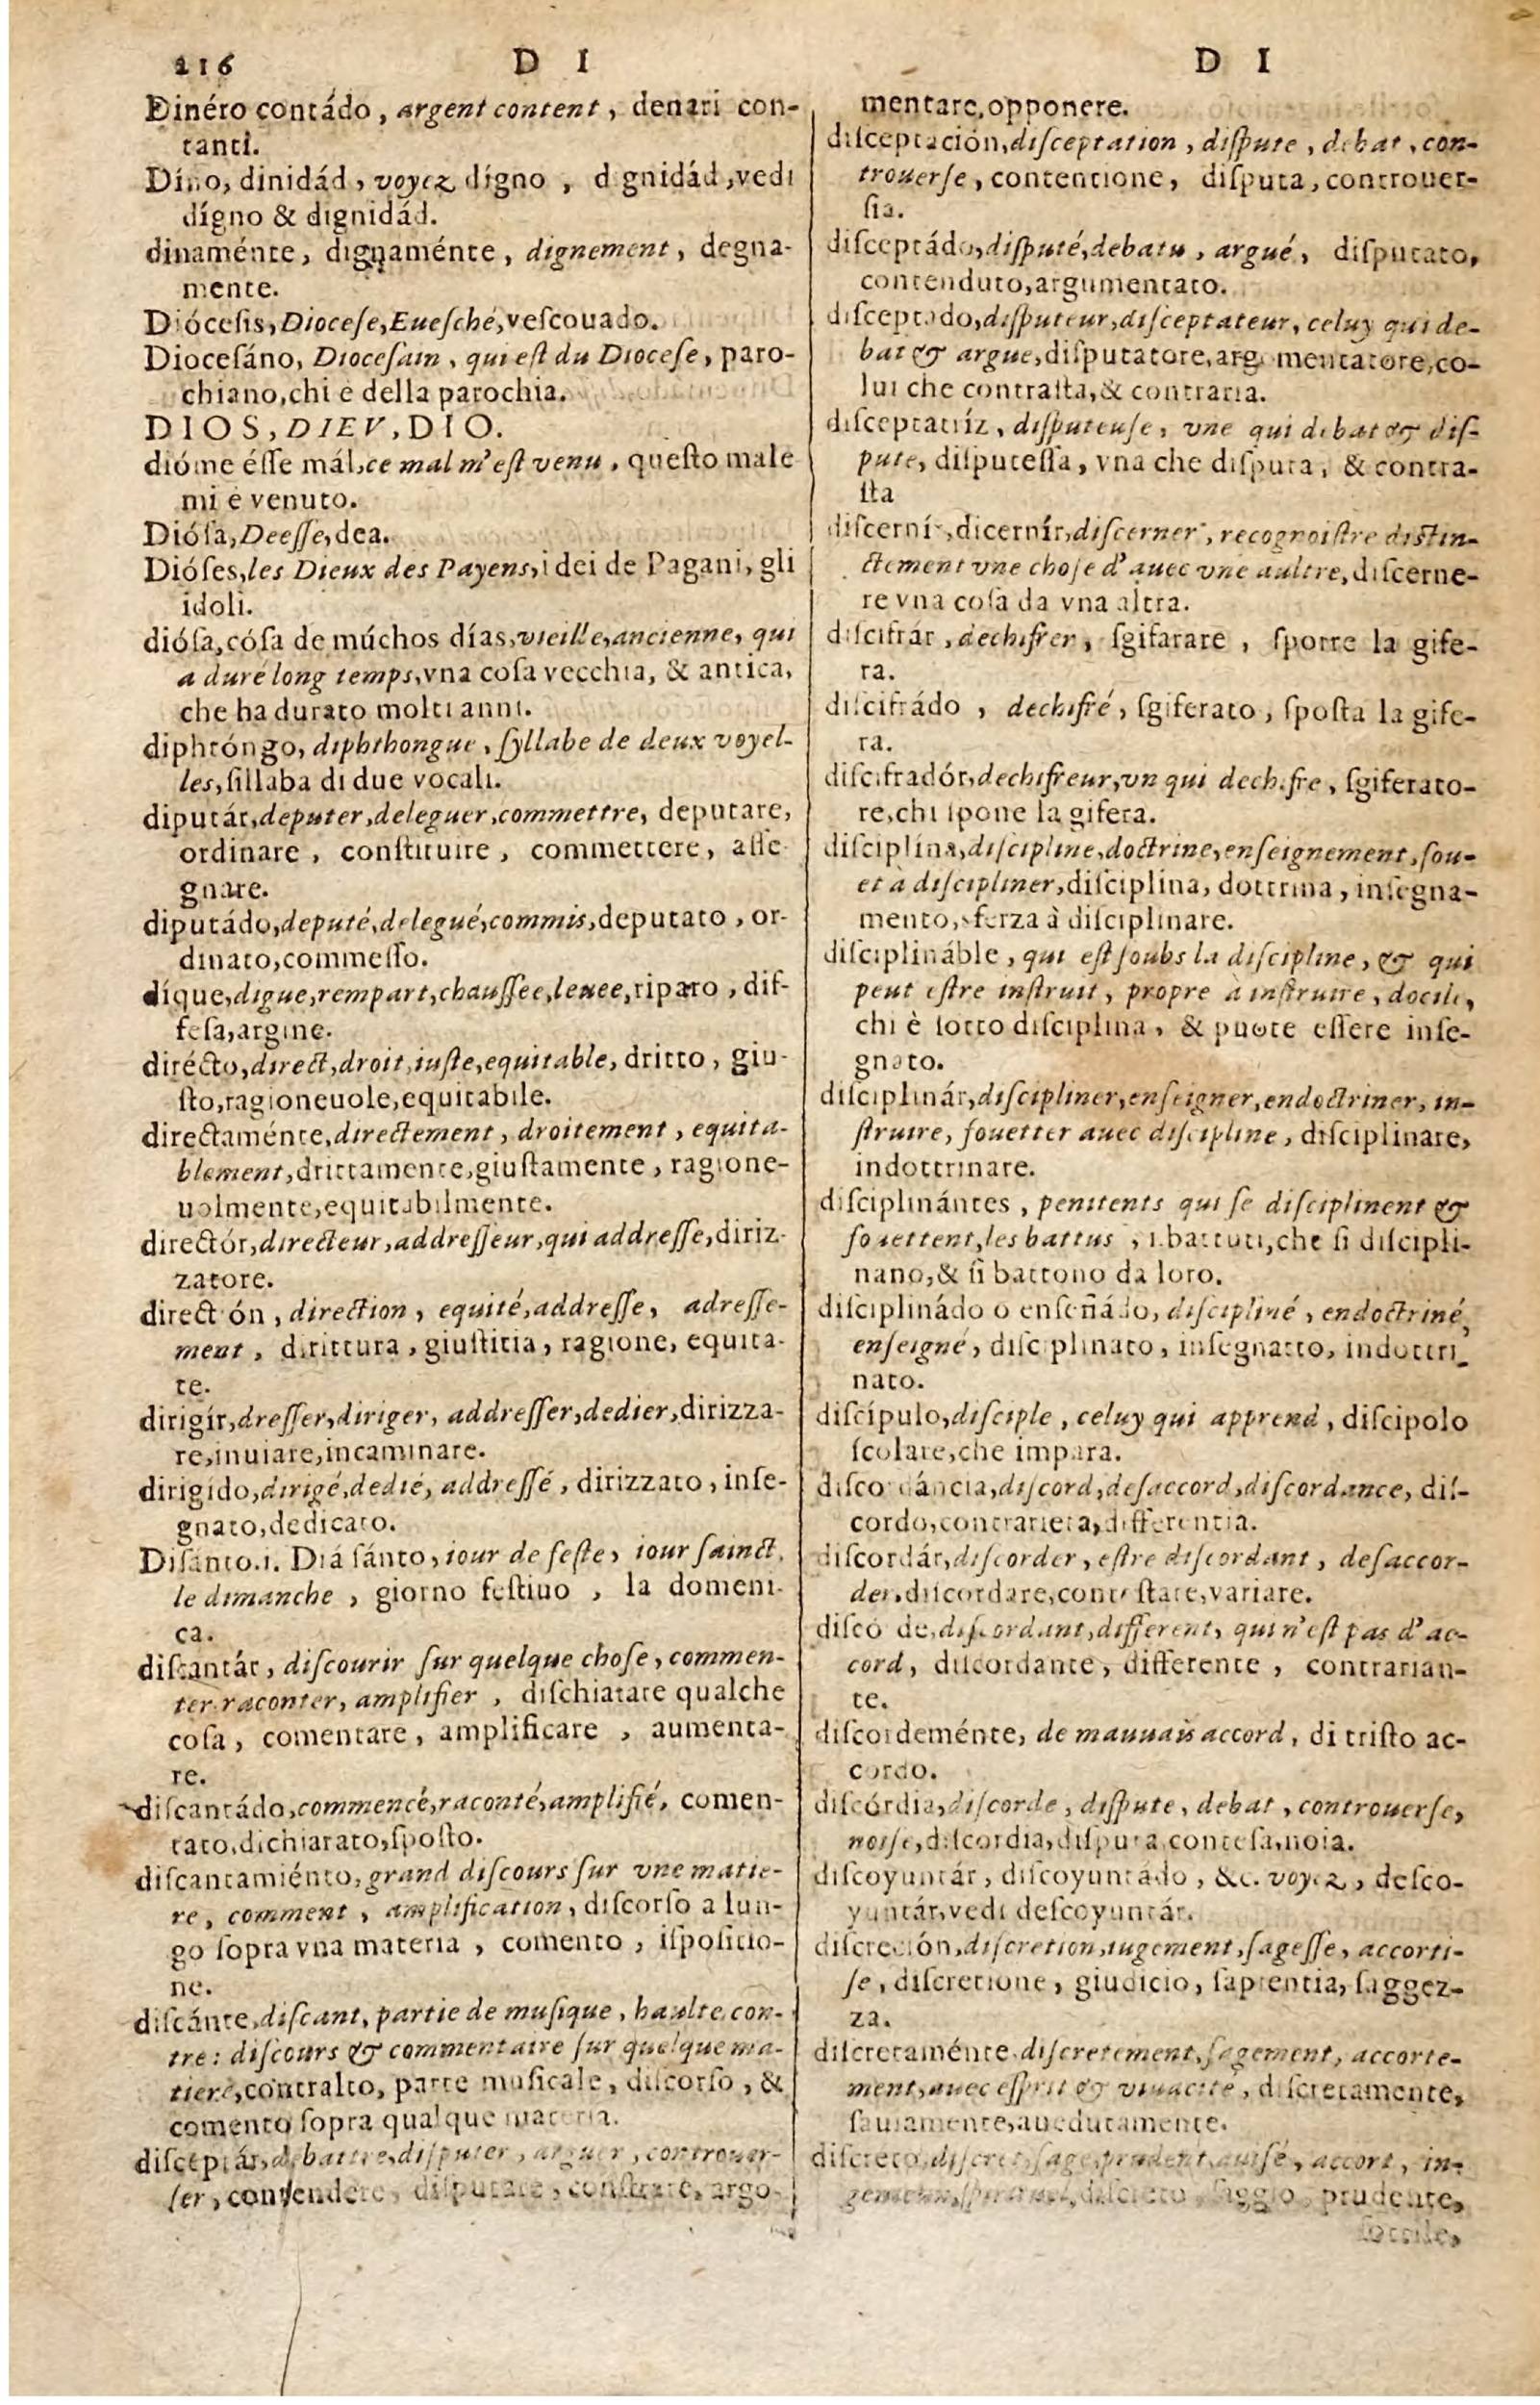 216 D I
Dinéro contádo, argent content, denari con-
tanti.
Díno, dinidád, voyez dígno, dignidád, vedi
dígno & dignidád.
dinaménte, dignaménte, dignement, degna-
mente.
Diócesis, Diocese, Euesché, vescouado.
Diocesáno, Diocesain, qui est du Diocese, paro-
chiano, chi e della parochia.
DIOS, DIEV, DIO.
dióme ésse mál, ce mal m'est venu, questo male
mi è venuto.
Diósa, Deesse, dea.
Dióses, les Dieux des Payens, i dei de Pagani, gli
idoli.
diósa, cósa de múchos días, vieille, ancienne, qui
a duré long temps, vna cosa vecchia, & antica,
che ha durato molti anni.
diphtóngo, diphthongue, syllabe de deux voyel-
les, sillaba di due vocali.
diputár, deputer, deleguer, commettre, deputare,
ordinare, constituire, commettere, asse-
gnare.
diputádo, deputé, delegué, commis, deputato, or-
dinato, commesso.
díque, digue, rempart, chaussee, leuee, riparo, dif-
fesa, argine.
dirécto, direct, droit, iuste, equitable, dritto, giu-
sto, ragioneuole, equitabile.
directaménte, directement, droitement, equita-
blement, drittamente, giustamente, ragione-
uolmente, equitabilmente.
directór, directeur, addresseur, qui addresse, diriz-
zatore.
direct ón, direction, equité, addresse, adresse-
ment, dirittura, giustitia, ragione, equita-
te.
dirigír, dresser, diriger, addresser, dedier, dirizza-
re, inuiare, incaminare.
dirigído, dirigé, dedié, addressé, dirizzato, inse-
gnato, dedicato.
Disánto. i. Diá sánto, iour de feste, iour sainct,
le dimanche, giorno festiuo, la domeni-
ca.
discantár, discourir sur quelque chose, commen-
ter, raconter, amplifier, dischiarare qualche
cosa, comentare, amplificare, aumenta-
re.
discantádo, commencé, raconté, amplifié, comen-
tato, dichiarato, sposto.
discantamiénto, grand discours sur vne matie-
re, comment, amplification, discorso a lun-
go sopra vna materia, comento, ispositio-
ne.
discánte, discant, partie de musique, haulte con-
tre: discours & commentaire sur quelque ma-
tiere, contralto, parte musicale, discorso, &
comento sopra qualque materia.
disceptár, debattre, disputer, arguer, controuer-
ser, contendere, disputare, constrare, argo-
D I
mentare, opponere.
disceptación, disceptation, dispute, debat, con-
trouerse, contentione, disputa, controuer-
sia.
disceptádo, disputé, debatu, argué, disputato,
contenduto, argumentato.
disceptado, disputeur, disceptateur, celuy qui de-
bat & argue, disputatore, argomentatore, co-
lui che contrasta, & contraria.
disceptatríz, disputeuse, vne qui debat & dis-
pute, disputessa, vna che disputa, & contra-
sta
discerní, dicernír, discerner, recognoistre distin-
ctement vne chose d'auec vne aultre, discerne-
re vna cosa da vna altra.
discifrár, dechifrer, sgifarare, sporre la gife-
ra.
discifrádo, dechifré, sgiferato, sposta la gife-
ra.
discifradór, dechifreur, vn qui dechifre, sgiferato-
re, chi spone la gifera.
disciplína, discipline, doctrine, enseignement, fou-
et à discipliner, disciplina, dottrina, insegna-
mento, sferza à disciplinare.
disciplináble, qui est soubs la discipline, & qui
peut estre instruit, propre à instruire, docile,
chi è sotto disciplina, & puote essere inse-
gnato.
disciplinár, discipliner, enseigner, endoctriner, in-
struire, fouetter auec discipline, disciplinare,
indottrinare.
disciplinántes, penitents qui se disciplinent &
fouettent, les battus, i battuti, che si discipli-
nano, & si battono da loro.
disciplinádo o enseñádo, discipliné, endoctriné,
enseigné, disciplinato, insegnatto, indottri-
nato.
discípulo, disciple, celuy qui apprend, discipolo
scolare, che impara.
discordáncia, discord, desaccord, discordance, dis-
cordo, contrarieta, differentia.
discordár, discorder, estre discordant, desaccor-
der, discordare, contrastare, variare.
disco de, discordant, different, qui n'est pas d'ac-
cord, discordante, differente, contrarian-
te.
discordeménte, de mauuais accord, di tristo ac-
cordo.
discórdia, discorde, dispute, debat, controuerse,
noise, discordia, disputa, contesa, noia.
discoyuntár, discoyuntádo, &c. voyez, desco-
yuntár, vedi descoyuntár.
discreción, discretion, iugement, sagesse, accorti-
se, discretione, giudicio, sapientia, saggez-
za.
discretaménte, discretement, sagement, accorte-
ment, auec esprit & viuacité, discretamente,
sauiamente, auedutamente.
discreto, discret, sage, prudent, auisé, accort, in-
genieux, spirituel, discreto, saggio, prudente,
sottile,